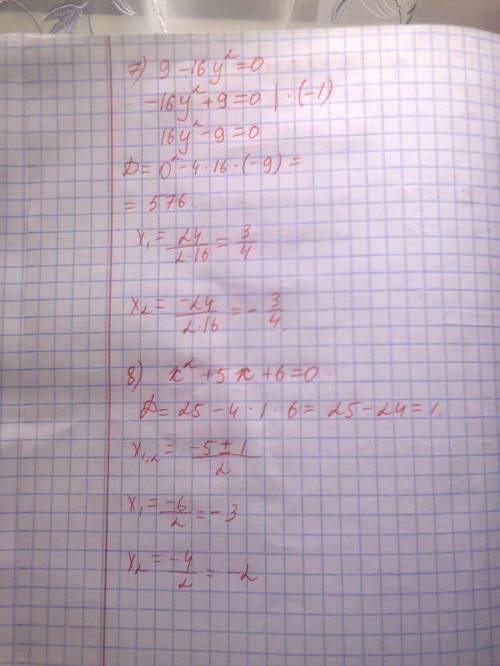 7) 9 - 16y² = 0
-16y² + 9 = 0 | · (-1)
16y² - 9 = 0
D = 0² - 4 · 16 · (-9) =
= 576.
x₁ = 24/(2·16) = 3/4
x₂ = -24/(2·16) = - 3/4.
8) x² + 5x + 6 = 0.
D = 25 - 4 · 1 · 6 = 25 - 24 = 1.
x₁,₂ = (-5 ± 1)/2
x₁ = -6/2 = -3
x₂ = -4/2 = -2